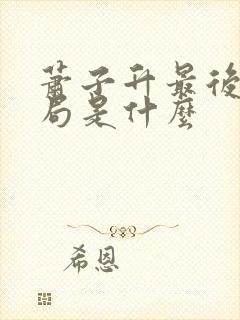 蕭子升最後
局是什麼
希恩